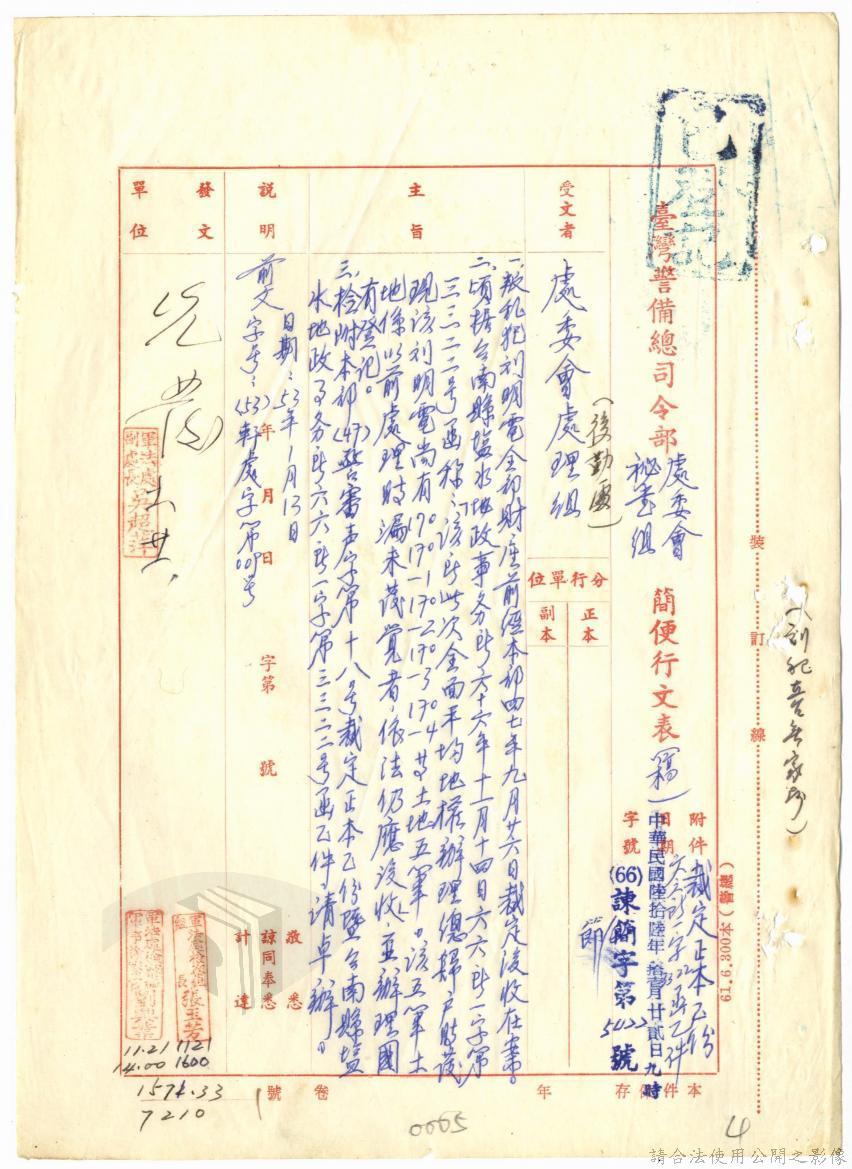 已登記
裝訂線
61.6.300本(繪總)
臺灣警備總司令部 處委會 秘書組 簡便行文表 (稿)
附件 裁定正本乙份
日期 中華民國陸拾陸年拾壹月廿貳日九時
字號 (66)諫簡字第5022號
本件保存 年
受文者
處委會處理組
(後勤處)
分行單位
正本
副本
主旨
一、叛亂犯刘明電全部財產前經本部四七年九月廿六日裁定沒收在案。
二、頃据台南縣塩水地政事务所六十六年十一月十四日六六所一字第
三三二二号函称:該所此次全面平均地權辦理總歸戶時發
現該刘明電尚有170 170-1 170-2 170-3 170-4等土地五筆。該五筆土
地係以前處理時漏未發覺者,依法仍應沒收,並辦理國
有登記。
三、檢附本部(47)警審声字第十八号裁定正本乙份暨台南縣塩
水地政事务所六六所一字第三三二二号函乙件,請卓辦。
說明
前文
日期:53年1月13日
字号:(53)軒處字第009号
年 月 日
字第 號
敬悉
諒同奉悉
計達
發文單位
先發
軍法處副處長吳超萍
張玉芳
11.21 14.00
1121 1600
1571.33
7210
卷 號
0065
4
請合法使用公開之影像